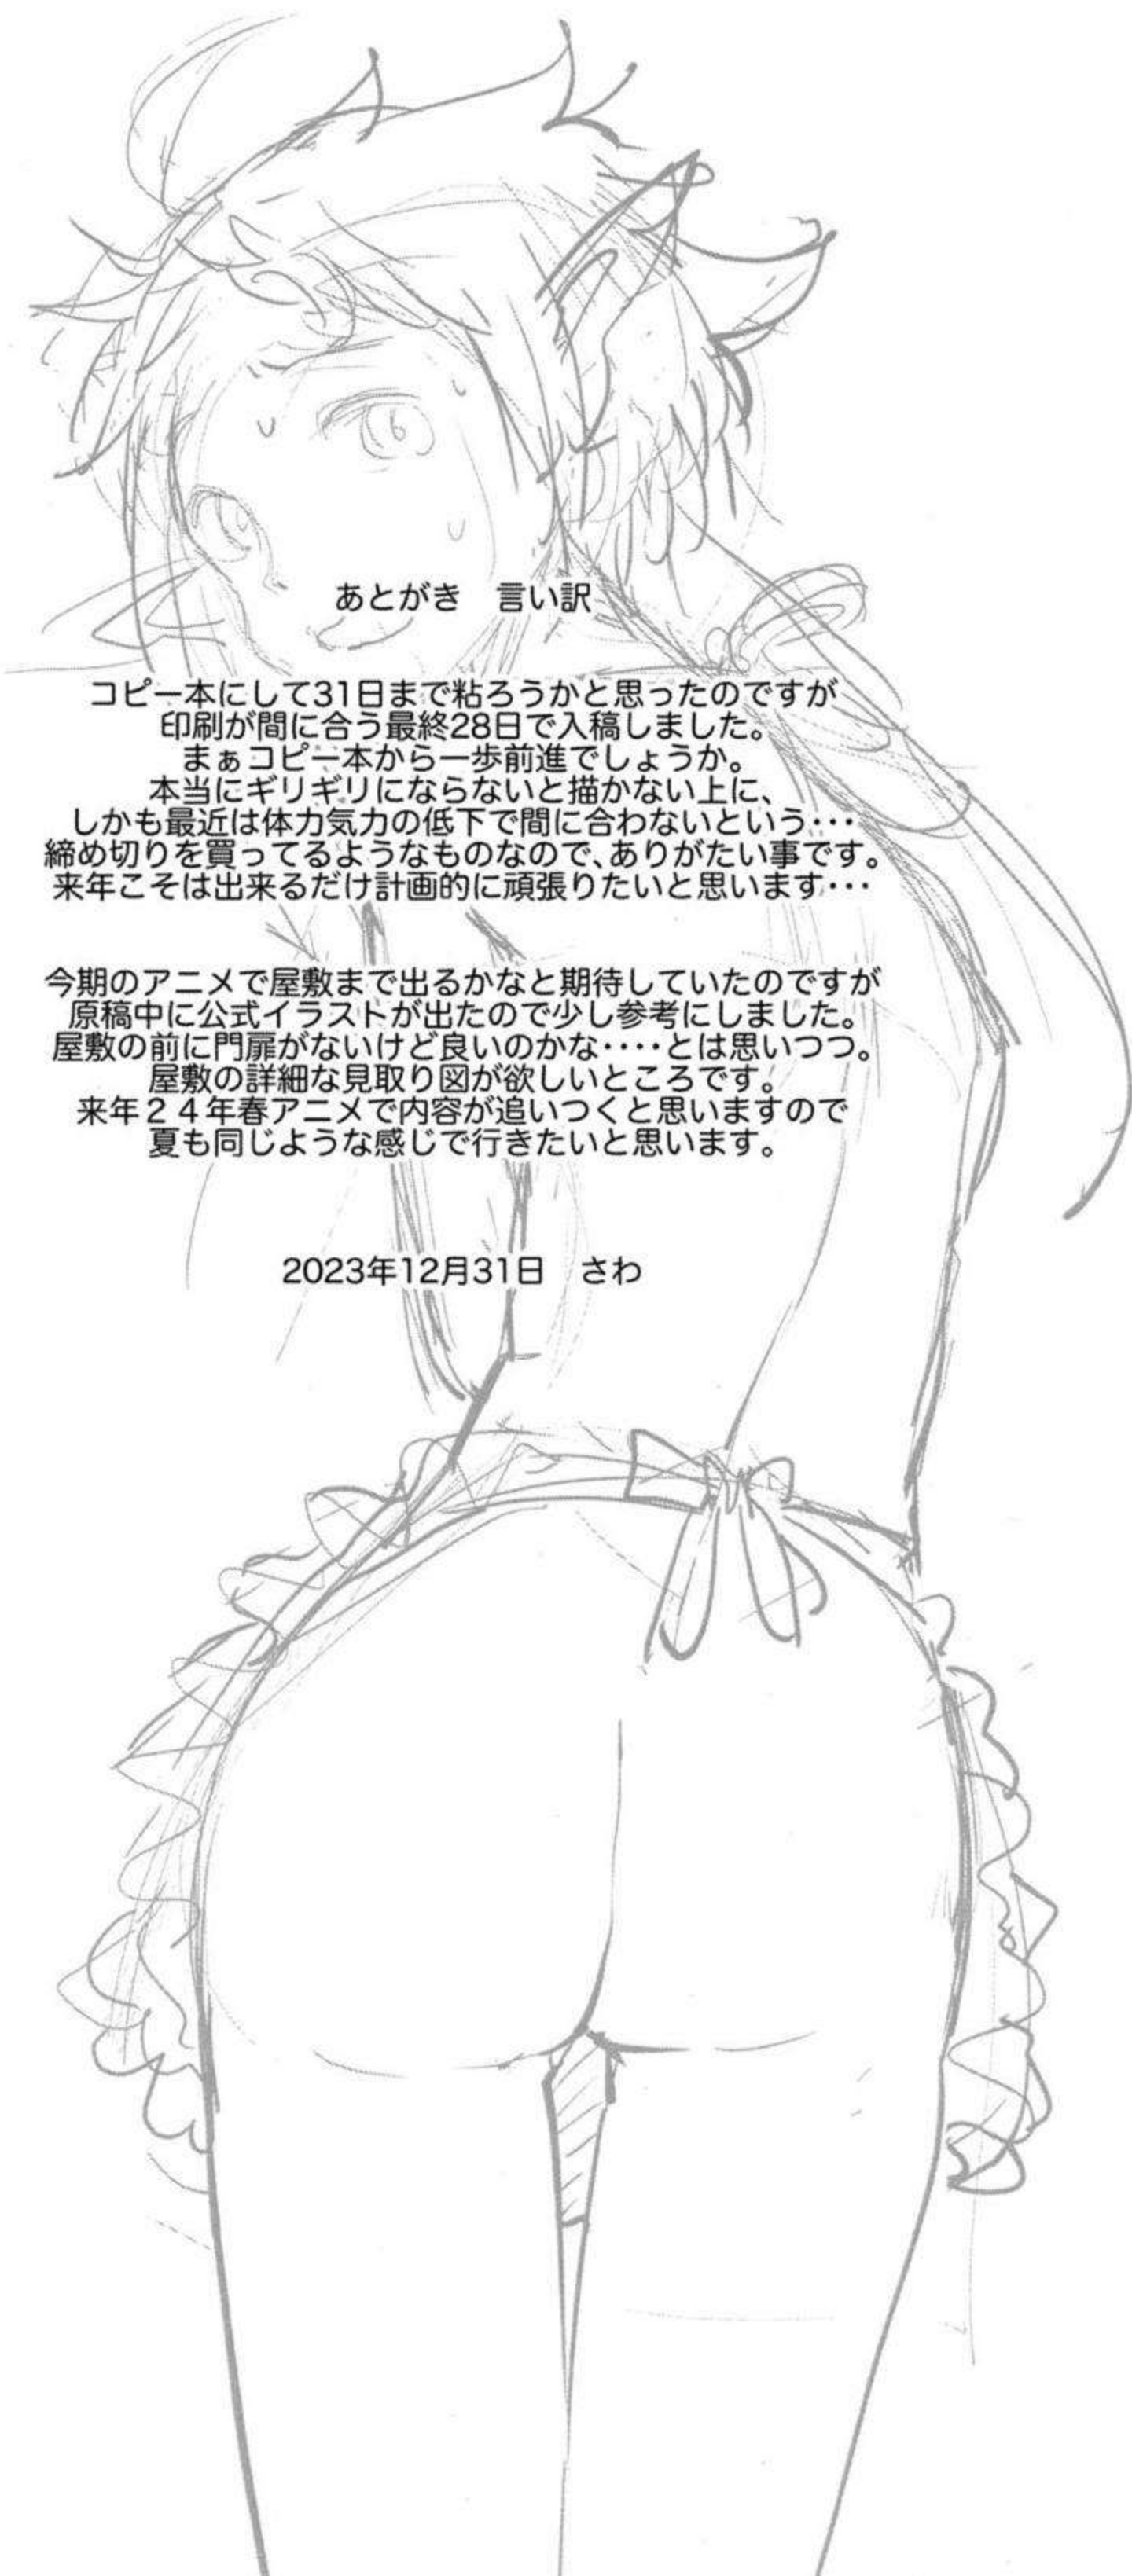 あとがき　言い訳
コピー本にして31日まで粘ろうかと思ったのですが
印刷が間に合う最終28日で入稿しました。
まぁコピー本から一歩前進でしょうか。
本当にギリギリにならないと描かない上に、
しかも最近は体力気力の低下で間に合わないという・・・
締め切りを買ってるようなものなので、ありがたい事です。
来年こそは出来るだけ計画的に頑張りたいと思います・・・
今期のアニメで屋敷まで出るかなと期待していたのですが
原稿中に公式イラストが出たので少し参考にしました。
屋敷の前に門扉がないけど良いのかな・・・・とは思いつつ。
屋敷の詳細な見取り図が欲しいところです。
来年２４年春アニメで内容が追いつくと思いますので
夏も同じような感じで行きたいと思います。
2023年12月31日　さわ